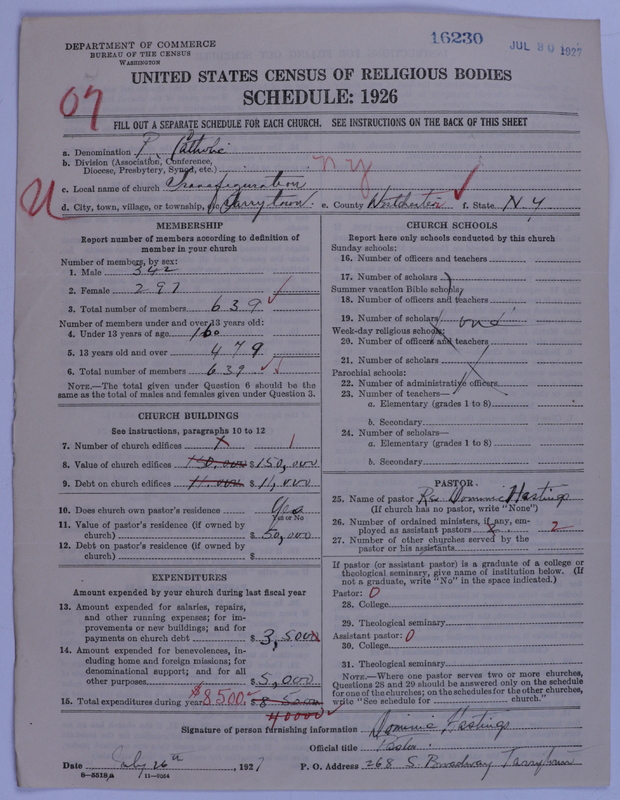 16230
JUL 20 1927
DEPARTMENT OF COMMERCE
BUREAU OF THE CENSUS
WASHINGTON
UNITED STATES CENSUS OF RELIGIOUS BODIES
SCHEDULE: 1926
07
FILL OUT A SEPARATE SCHEDULE FOR EACH CHURCH. SEE INSTRUCTIONS ON THE BACK OF THIS SHEET
a. Denomination R. Catholic
b. Division (Association, Conference, Diocese, Presbytery, Synod, etc.) NY
c. Local name of church Transfiguration
U
d. City, town, village, or township, etc. Tarrytown. e. County Westchester f. State N Y
MEMBERSHIP
Report number of members according to definition of
member in your church
Number of members, by sex:
1. Male 342
2. Female 297
3. Total number of members 639
Number of members under and over 13 years old:
4. Under 13 years of age 160
5. 13 years old and over 479
6. Total number of members 639
NOTE.—The total given under Question 6 should be the
same as the total of males and females given under Question 3.
CHURCH BUILDINGS
See instructions, paragraphs 10 to 12
7. Number of church edifices 1
8. Value of church edifices 150,000 $150,000
9. Debt on church edifices 11.000 $11,000
10. Does church own pastor's residence Yes
Yes or No
11. Value of pastor's residence (if owned by
church) $50,000
12. Debt on pastor's residence (if owned by
church) $
EXPENDITURES
Amount expended by your church during last fiscal year
13. Amount expended for salaries, repairs,
and other running expenses; for im-
provements or new buildings; and for
payments on church debt $3,500
14. Amount expended for benevolences, in-
cluding home and foreign missions; for
denominational support; and for all
other purposes $5,000
15. Total expenditures during year $8500. $8 500
40000
CHURCH SCHOOLS
Report here only schools conducted by this church
Sunday schools:
16. Number of officers and teachers
17. Number of scholars
Summer vacation Bible schools:
18. Number of officers and teachers
19. Number of scholars
Week-day religious schools:
20. Number of officers and teachers
21. Number of scholars
Parochial schools:
22. Number of administrative officers
23. Number of teachers—
a. Elementary (grades 1 to 8)
b. Secondary
24. Number of scholars—
a. Elementary (grades 1 to 8)
b. Secondary
PASTOR
25. Name of pastor Rev Dominic Hastings
(If church has no pastor, write "None")
26. Number of ordained ministers, if any, em-
ployed as assistant pastors 2
27. Number of other churches served by the
pastor or his assistants
If pastor (or assistant pastor) is a graduate of a college or
theological seminary, give name of institution below. (If
not a graduate, write "No" in the space indicated.)
Pastor: 0
28. College
29. Theological seminary
Assistant pastor: 0
30. College
31. Theological seminary
NOTE.—Where one pastor serves two or more churches,
Questions 28 and 29 should be answered only on the schedule
for one of the churches; on the schedules for the other churches,
write "See schedule for church."
Signature of person furnishing information Dominic Hastings
Official title Pastor.
Date July 26th, 1927 P. O. Address 268 S. Broadway Tarrytown
6—5518a 11—9264